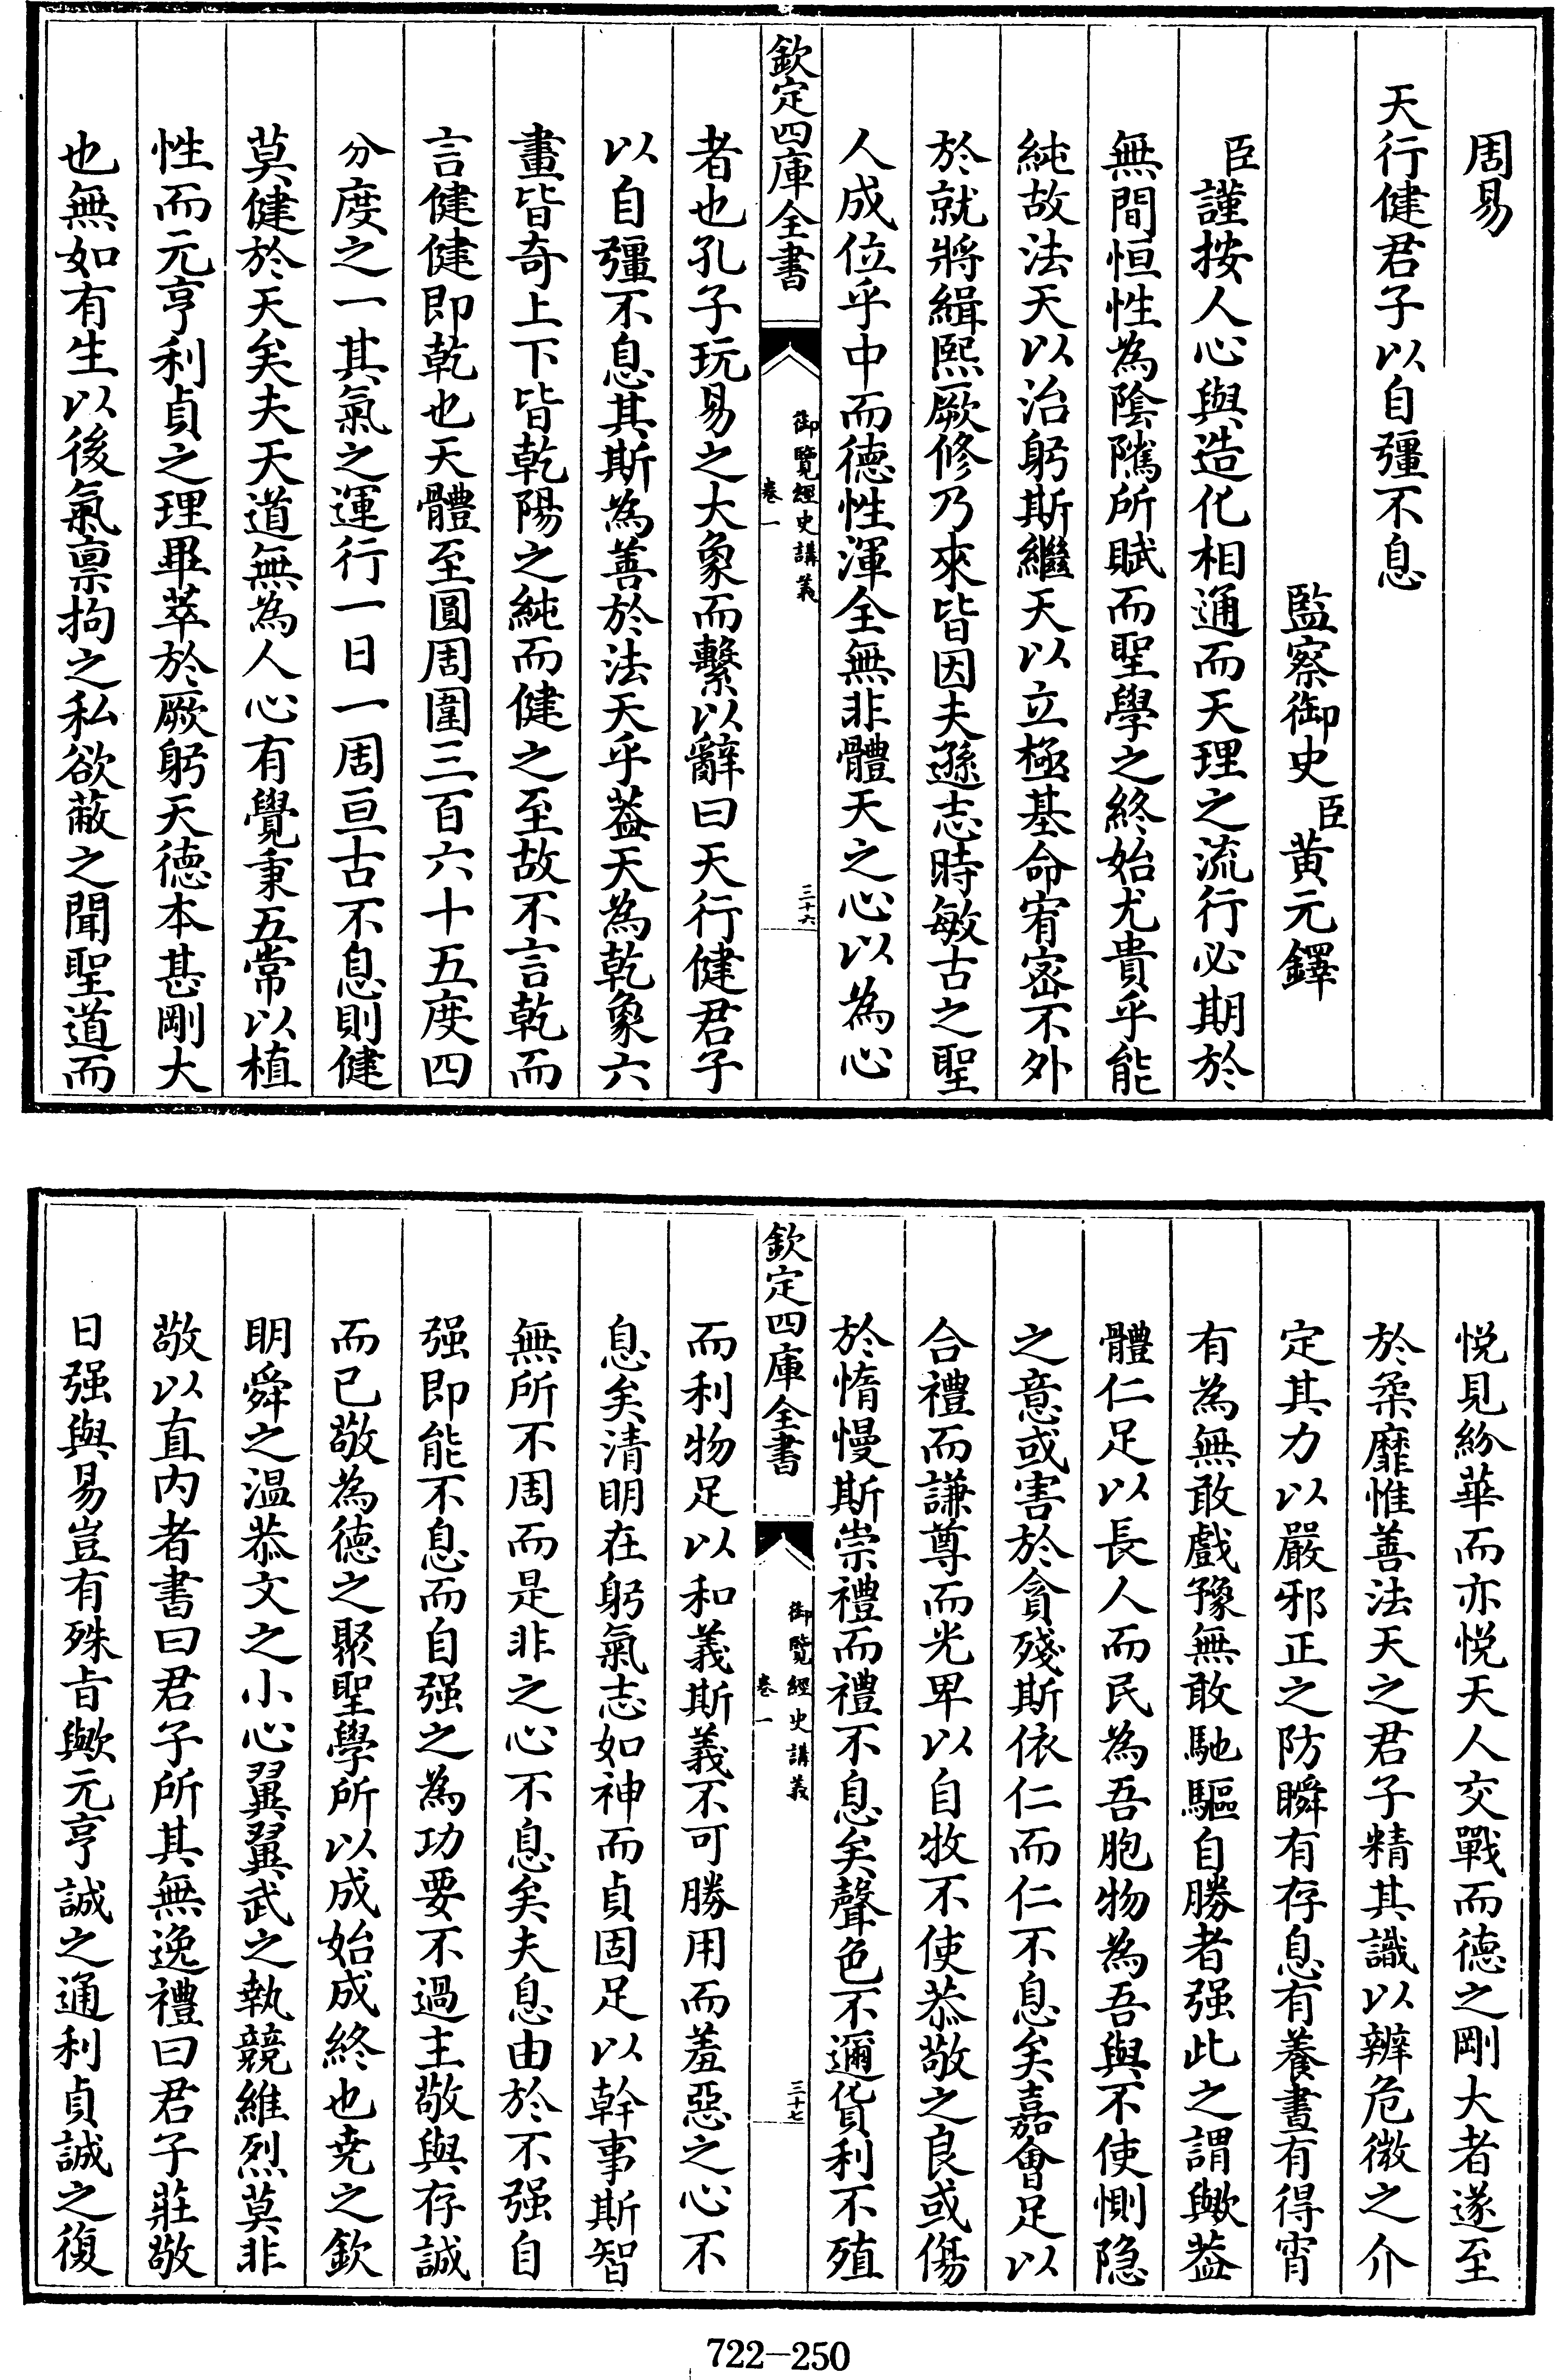 周易
天行健君子以自彊不息
監察御史臣黄元鐸
臣謹按人心與造化相通而天理之流行必期於
無間恒性為陰隲所賦而聖學之終始尤貴乎能
純故法天以治躬斯繼天以立極基命宥宻不外
於就將緝熙厥修乃來皆因夫遜志時敏古之聖
人成位乎中而德性渾全無非體天之心以為心
欽定四庫全書
御覽經史講義
卷一
三十六
者也孔子玩易之大象而繫以辭曰天行健君子
以自彊不息其斯為善於法天乎葢天為乾象六
畫皆奇上下皆乾陽之純而健之至故不言乾而
言健健即乾也天體至圓周圍三百六十五度四
分度之一其氣之運行一日一周亘古不息則健
莫健於天矣夫天道無為人心有覺秉五常以植
性而元亨利貞之理畢萃於厥躬天德本甚剛大
也無如有生以後氣禀拘之私欲蔽之聞聖道而
悦見紛華而亦悦天人交戰而德之剛大者遂至
於柔靡惟善法天之君子精其識以辨危微之介
定其力以嚴邪正之防瞬有存息有養晝有得宵
有為無敢戲豫無敢馳驅自勝者强此之謂歟葢
體仁足以長人而民為吾胞物為吾與不使惻隐
之意或害於貪殘斯依仁而仁不息矣嘉㑹足以
合禮而謙尊而光卑以自牧不使恭敬之良或傷
於惰慢斯崇禮而禮不息矣聲色不邇貨利不殖
欽定四庫全書
御覽經史講義
卷一
三十七
而利物足以和義斯義不可勝用而羞惡之心不
息矣清明在躬氣志如神而貞固足以幹事斯智
無所不周而是非之心不息矣夫息由於不强自
强即能不息而自强之為功要不過主敬與存誠
而已敬為德之聚聖學所以成始成終也堯之欽
明舜之温恭文之小心翼翼武之執競維烈莫非
敬以直内者書曰君子所其無逸禮曰君子莊敬
日强與易豈有殊旨歟元亨誠之通利貞誠之復
722-250